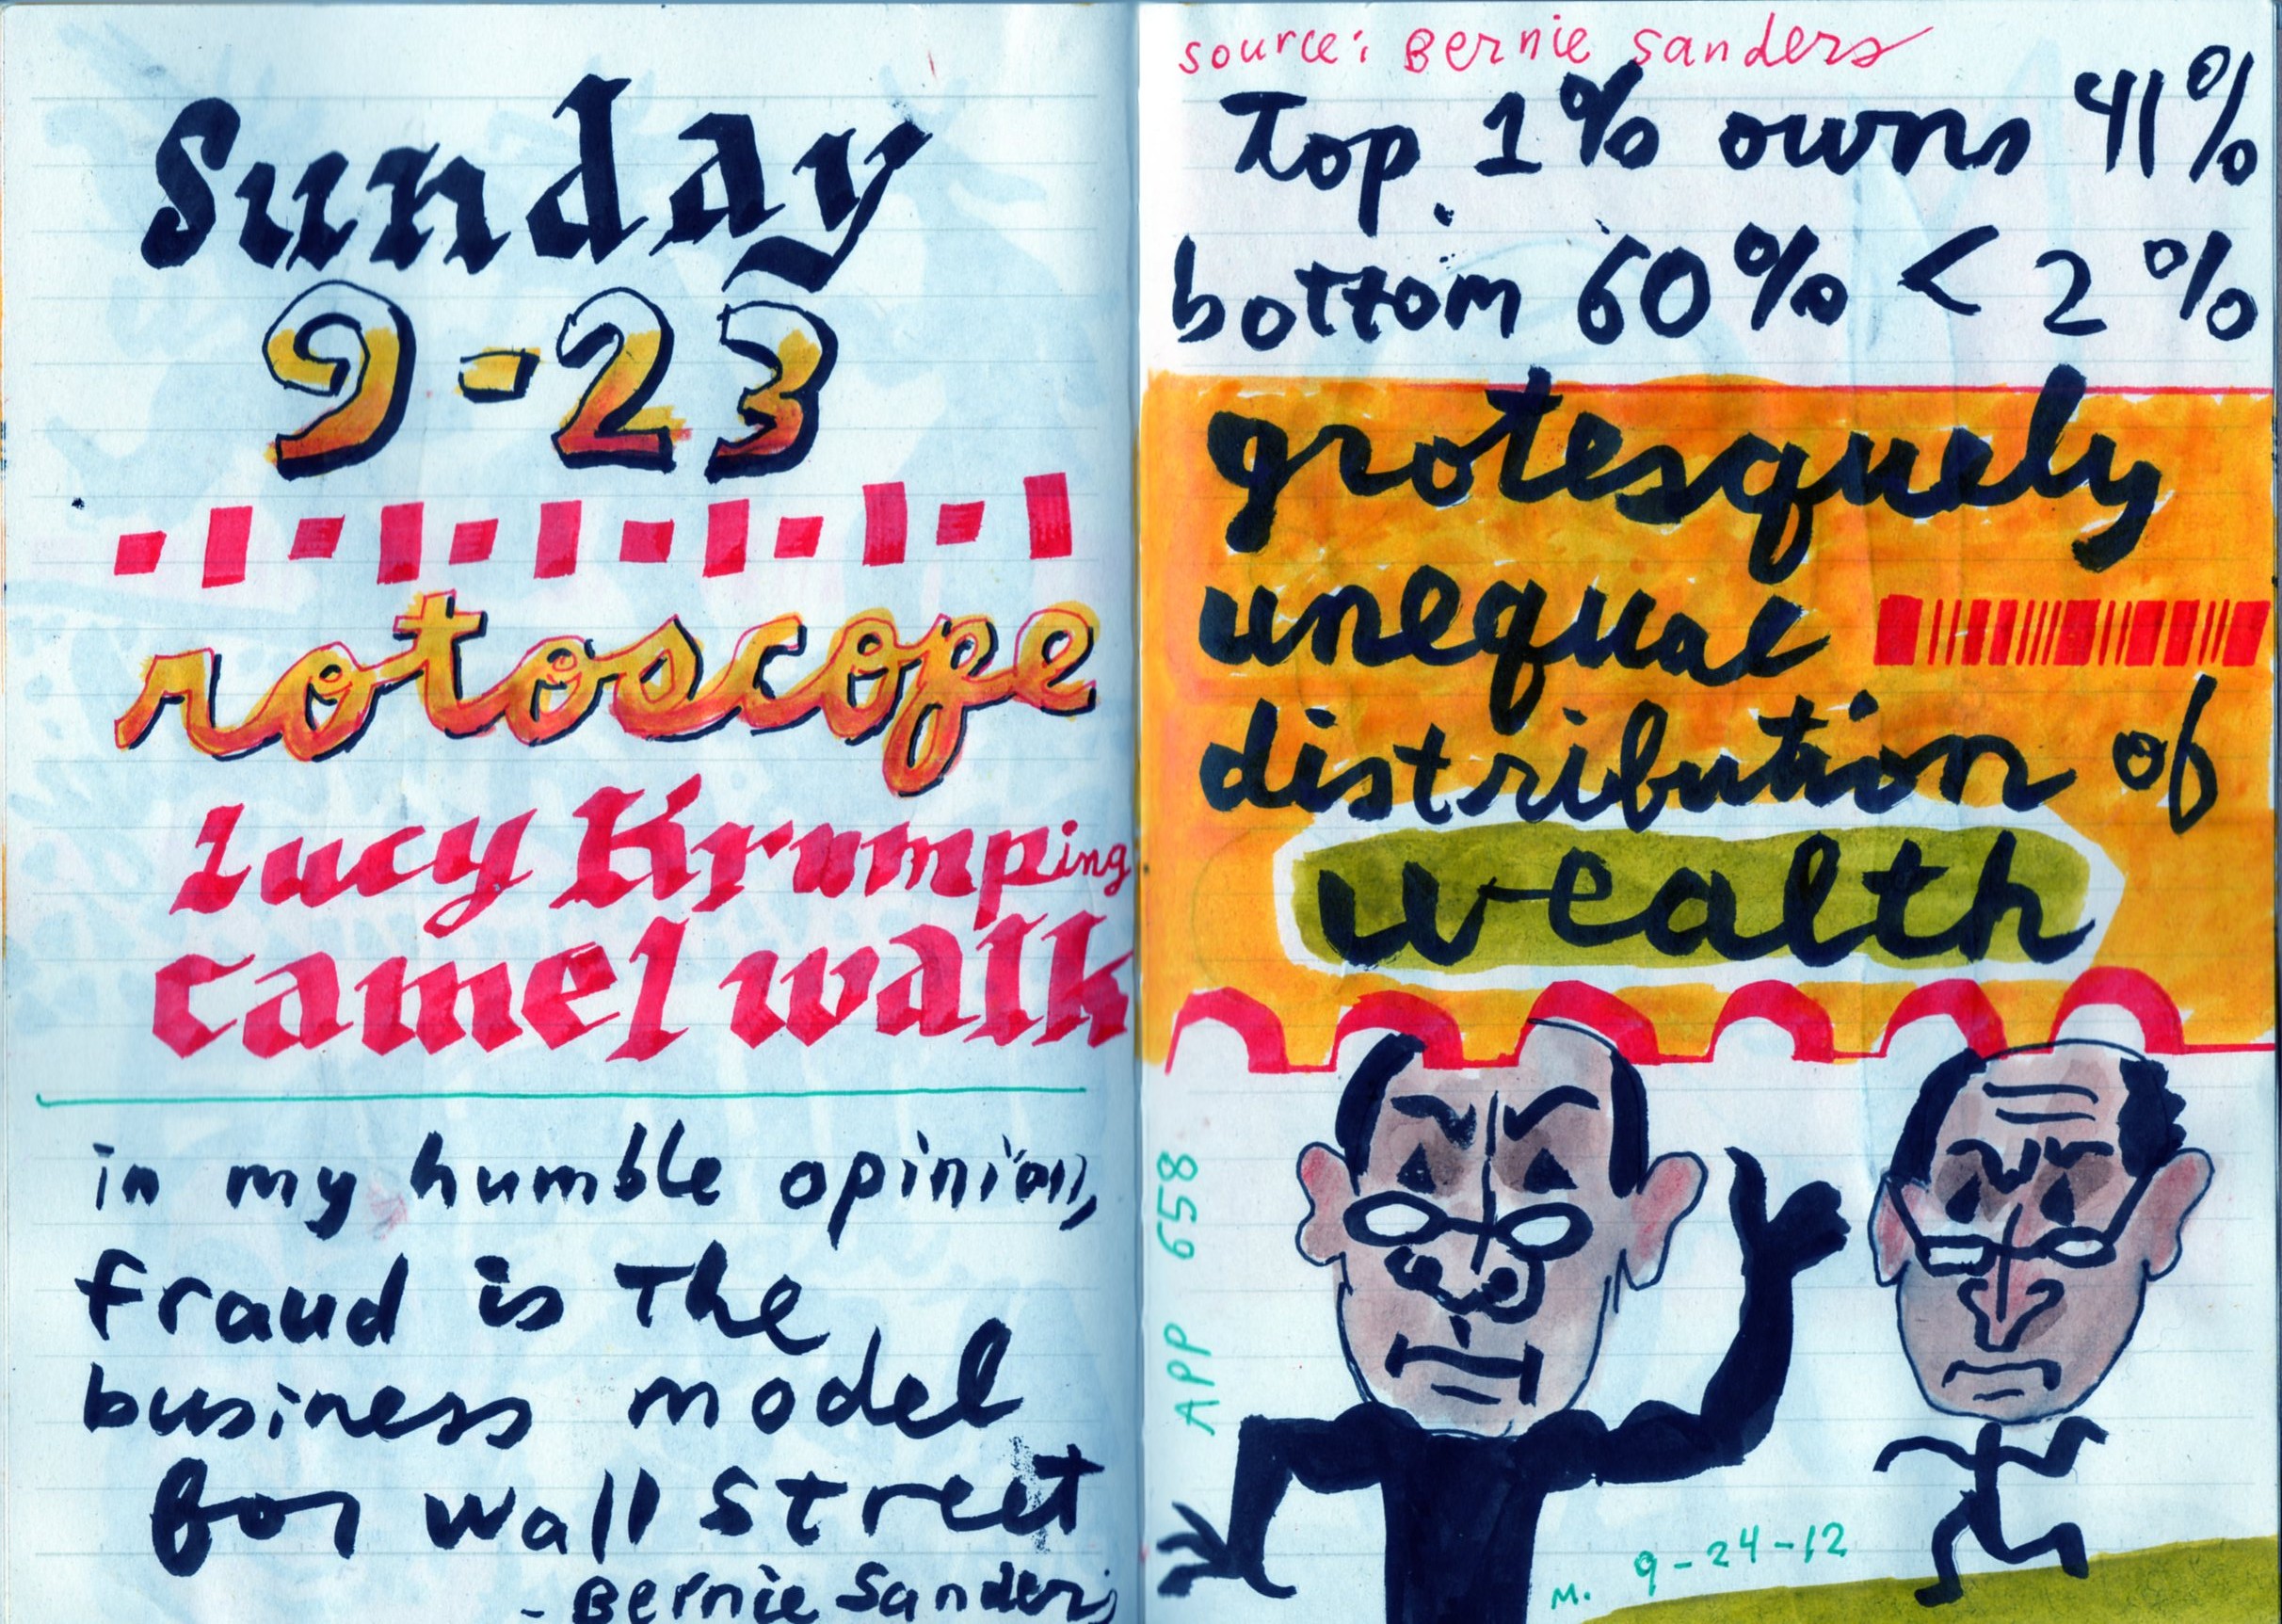 Sunday
9-23
rotoscope
Lucy Krumping
camel walk
in my humble opinion,
fraud is the
business model
for wall street
- Bernie Sanders
source: Bernie Sanders
Top 1% owns 41%
bottom 60% < 2%
grotesquely
unequal
distribution of
wealth
APP 658
M. 9-24-12